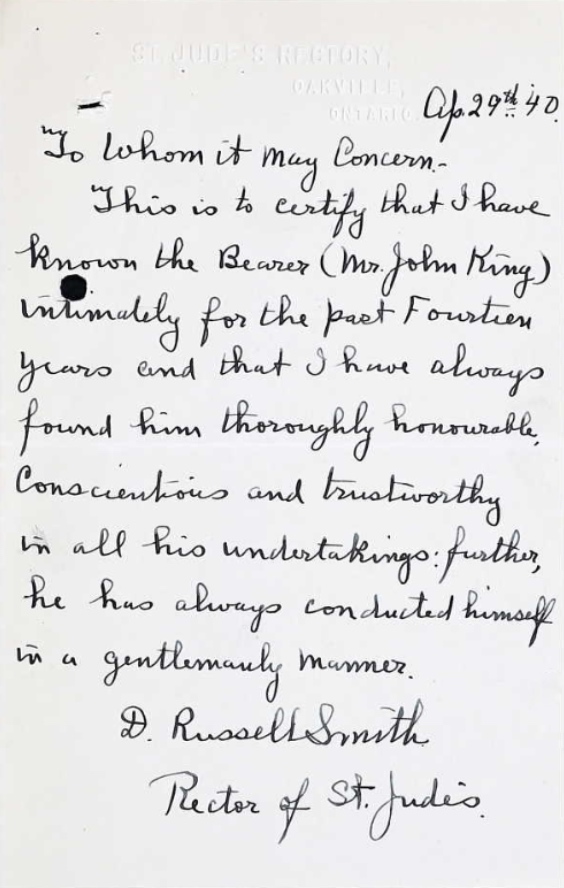 ST. JUDE'S RECTORY,
OAKVILLE,
ONTARIO.
Ap. 29th '40.
To Whom it May Concern.-
This is to certify that I have
known the Bearer (Mr. John King)
intimately for the past Fourteen
years and that I have always
found him thoroughly honourable,
Conscientious and trustworthy
in all his undertakings: further,
he has always conducted himself
in a gentlemanly manner.
D. Russell Smith
Rector of St. Jude's.